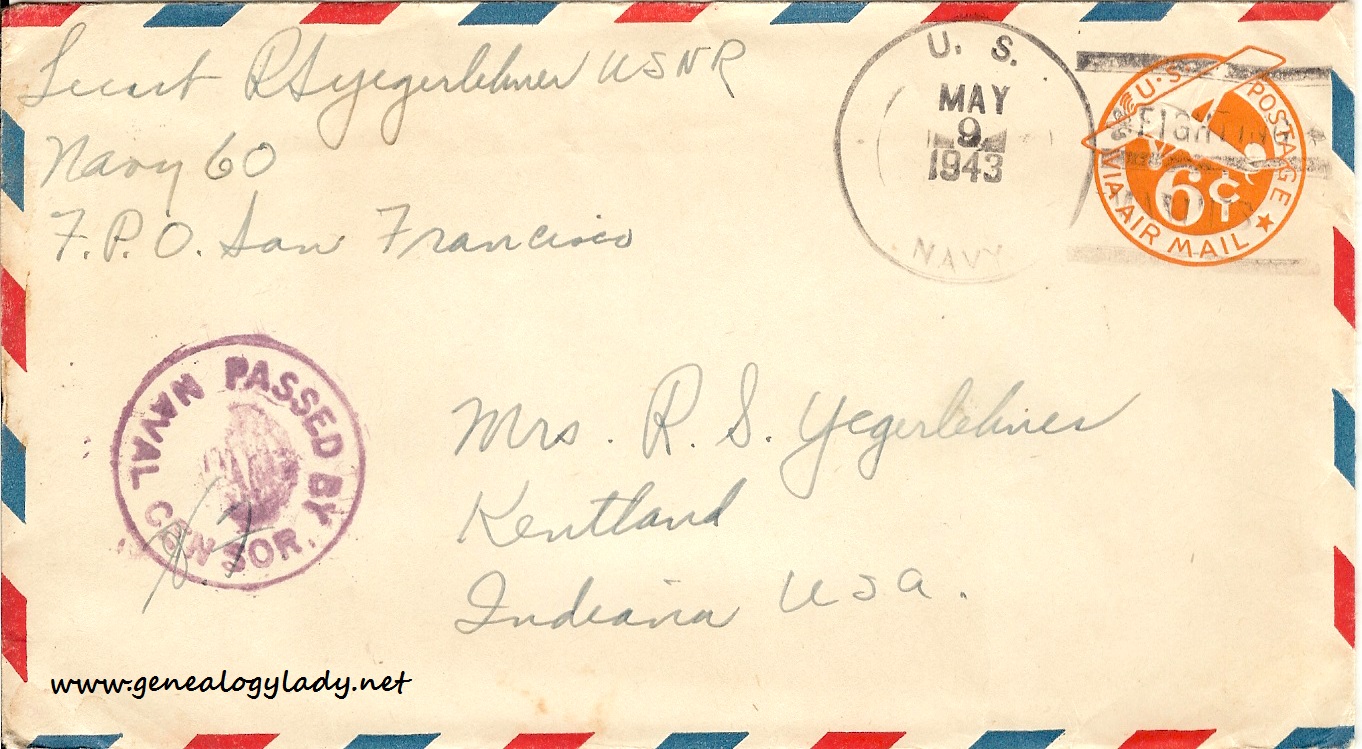 Lieut RSYegerlehner USNR
Navy 60
F.P.O. San Francisco
U. S.
MAY
9
1943
NAVY
U.S. POSTAGE
6¢
VIA AIR MAIL
PASSED BY
NAVAL CENSOR
Mrs. R. S. Yegerlehner
Kentland
Indiana USA.
www.genealogylady.net